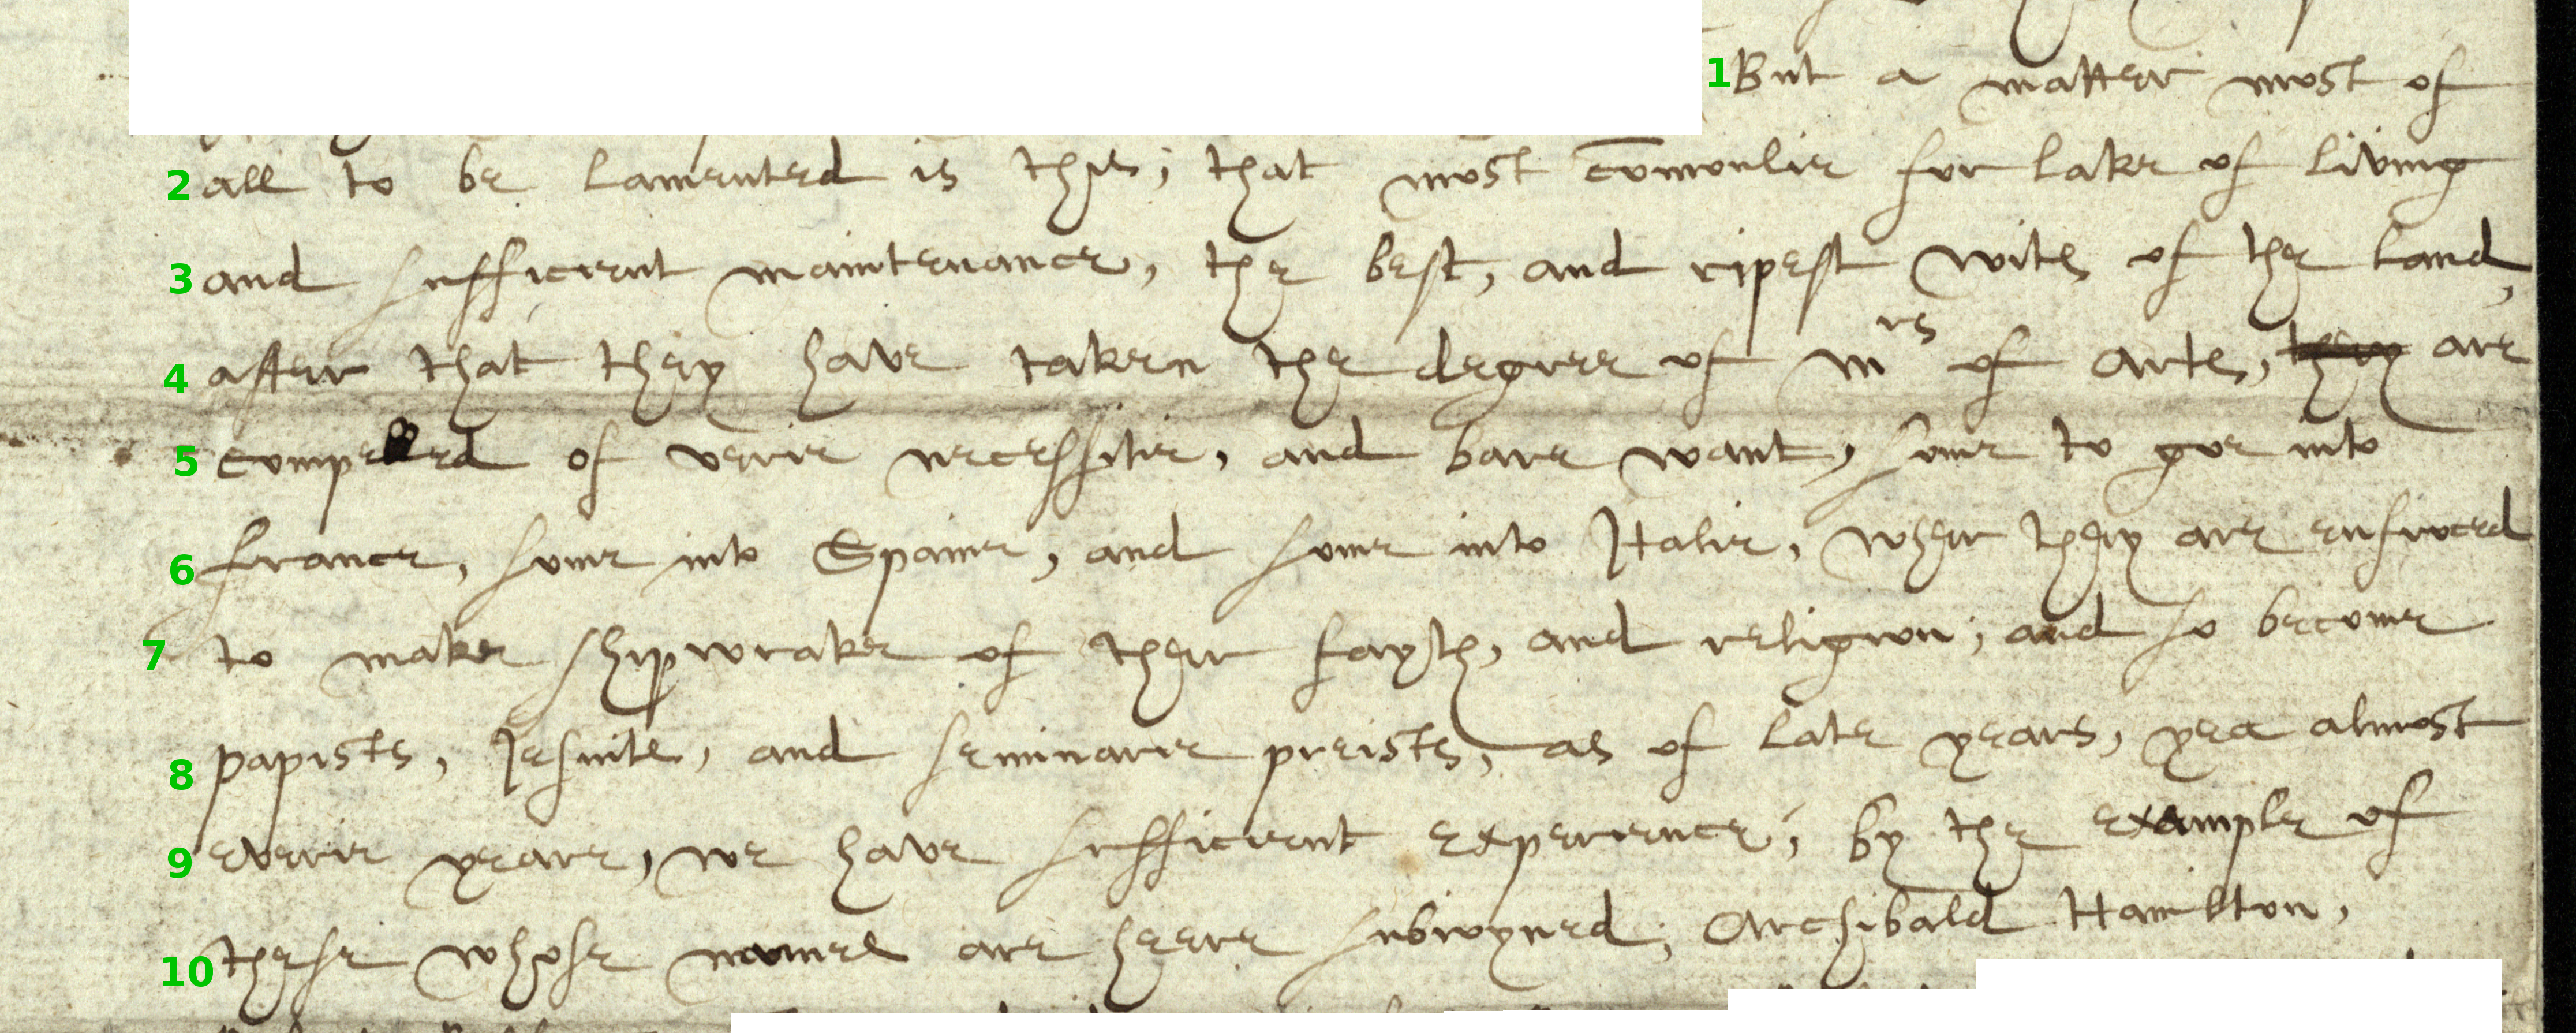 But a matter most of
all to be lamented is this; that most com̄onlie for lake of living
and sufficient maintenance, the best, and ripest wits of the land,
after that they have taken the degree of Mrs of Arts, they are
compelled of verie necessitie, and bare want, some to goe into
france, some into Spaine, and some into Italie, wher they are enforced
to make shipwrake of their fayth, and religion; and so become
papists, Jesuits, and seminarie preists, as of late years, yea almost
everie yeare, we have sufficient experience, by the example of
these whose names are heere subioyned; Archibald Hamilton,